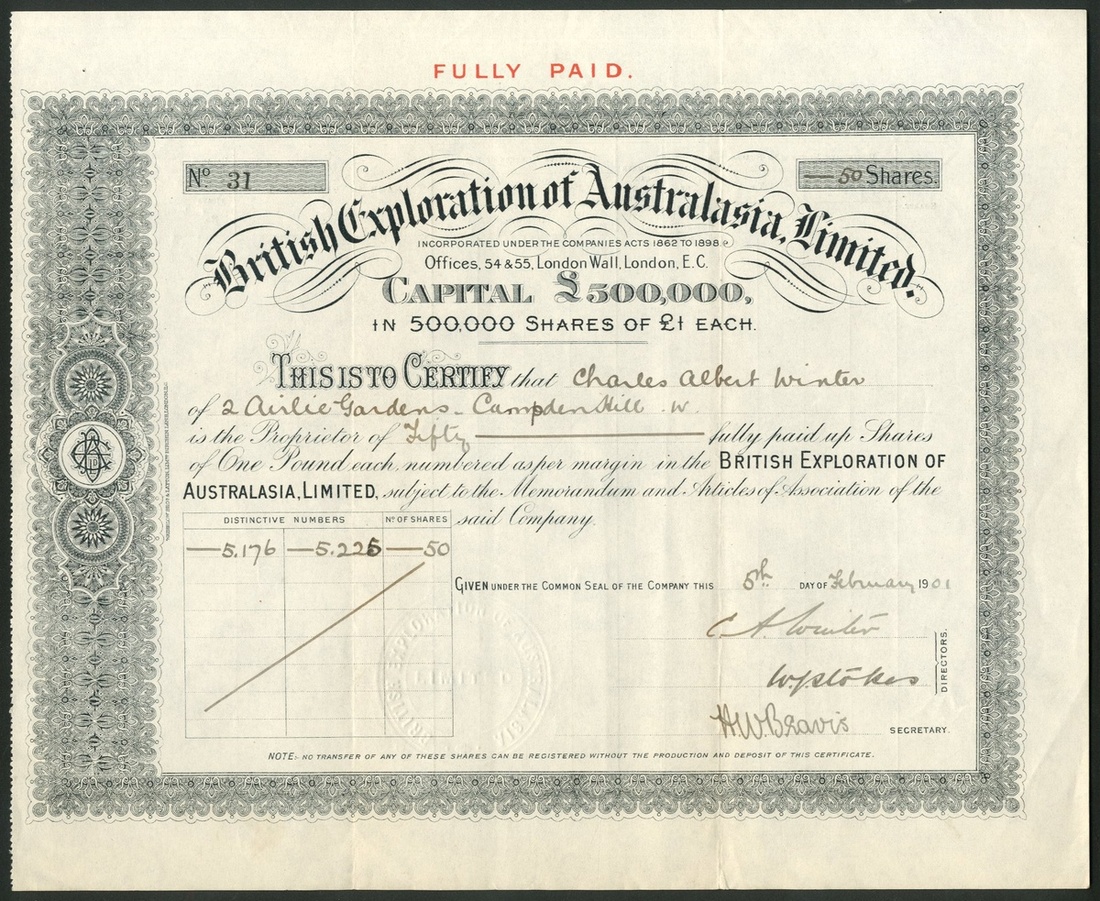 FULLY PAID.
No. 31
—50 Shares.
British Exploration of Australasia, Limited.
INCORPORATED UNDER THE COMPANIES ACTS 1862 TO 1898.
Offices, 54 & 55, London Wall, London, E.C.
CAPITAL £500,000,
IN 500,000 SHARES OF £1 EACH.
THIS IS TO CERTIFY that Charles Albert Winter
of 2 Airlie Gardens - Campden Hill. W.
is the Proprietor of Fifty — fully paid up Shares
of One Pound each, numbered as per margin in the BRITISH EXPLORATION OF
AUSTRALASIA, LIMITED, subject to the Memorandum and Articles of Association of the
said Company.
DISTINCTIVE NUMBERS No. OF SHARES
—5.176 —5.225 —50
GIVEN UNDER THE COMMON SEAL OF THE COMPANY THIS 5th DAY OF February 1901
C. A. Winter
W. J. Stokes
DIRECTORS.
H.W. Bravis
SECRETARY.
BRITISH EXPLORATION OF AUSTRALASIA
LIMITED
NOTE:- NO TRANSFER OF ANY OF THESE SHARES CAN BE REGISTERED WITHOUT THE PRODUCTION AND DEPOSIT OF THIS CERTIFICATE.